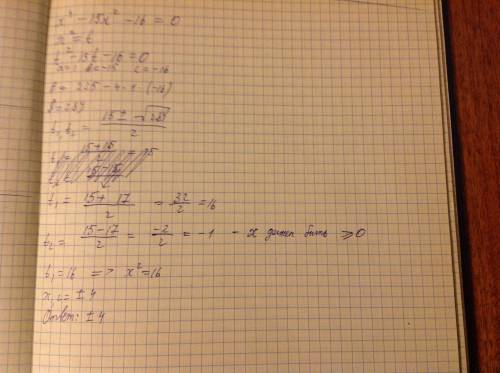 x⁴ - 15x² - 16 = 0
x² = t
t² - 15t - 16 = 0
a=1 b=-15 c=-16
D = 225 - 4·1·(-16)
D = 289
t₁,t₂ = (15 ± √289)/2
t₁ = (15+17)/2 = 32/2 = 16
t₂ = (15-17)/2 = -2/2 = -1 - x должен быть ≥0
t₁ = 16 => x² = 16
x₁,₂ = ± 4
Ответ: ± 4